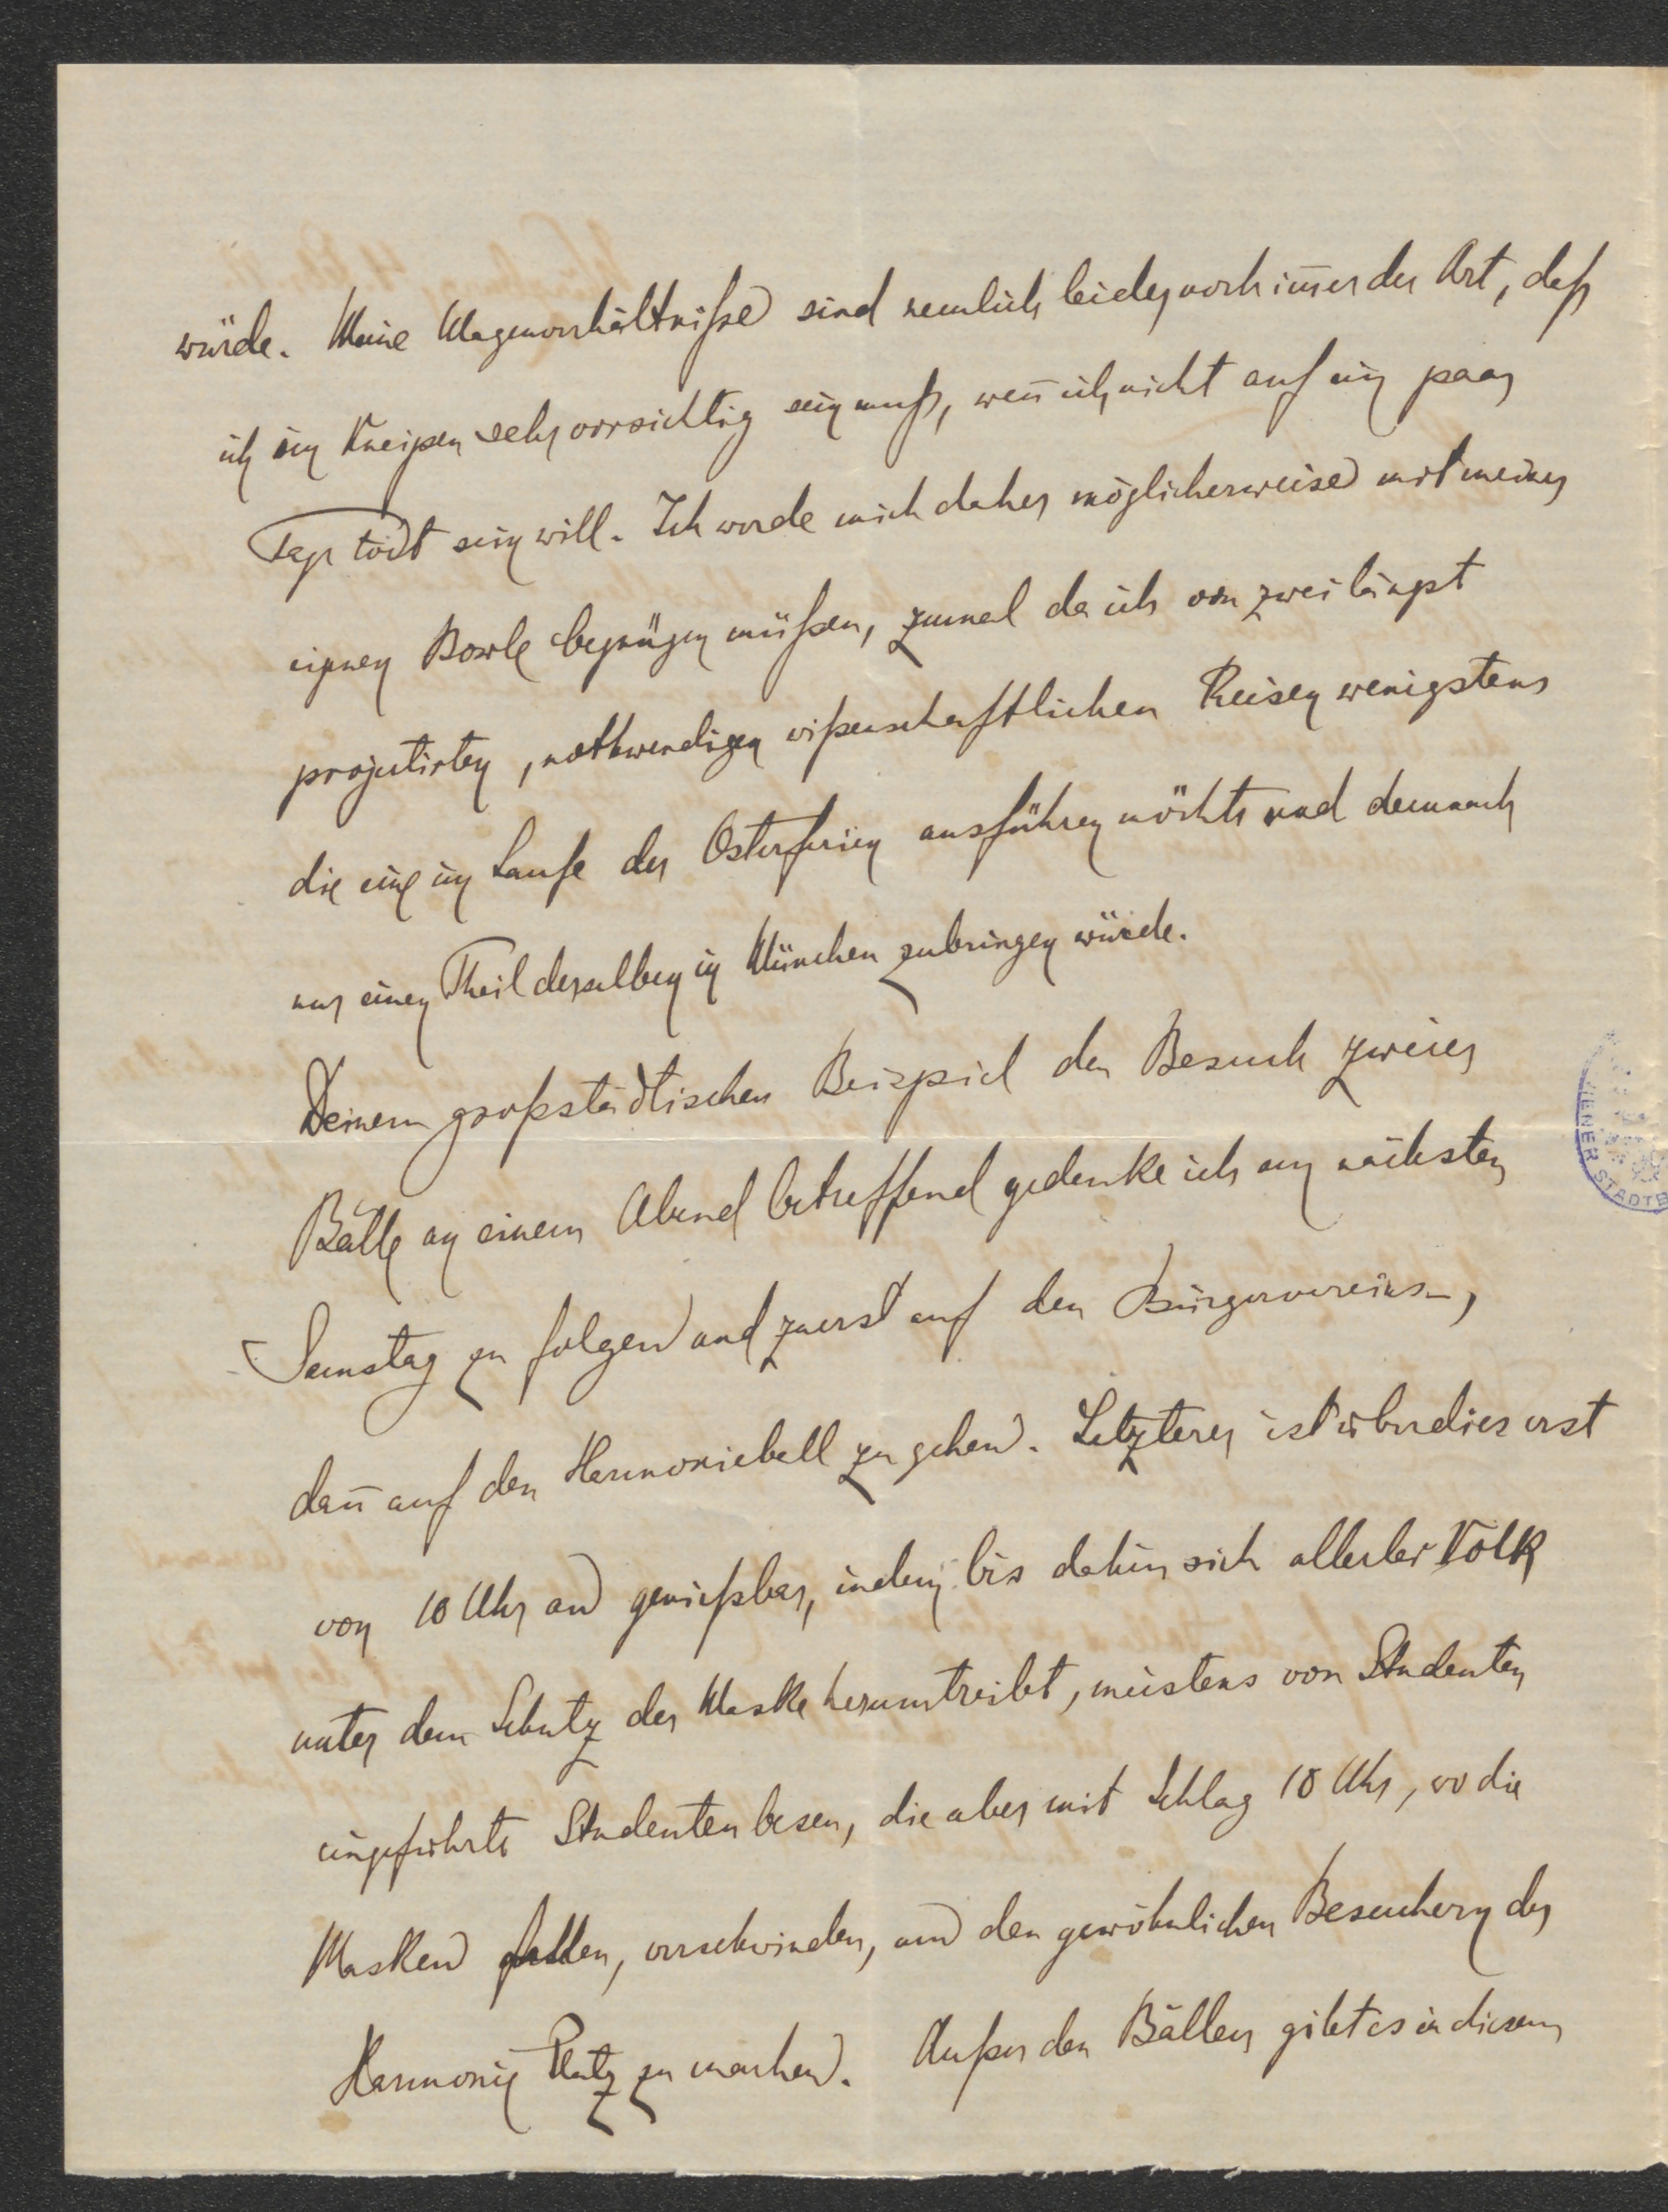 würde. Meine Magenverhältniße sind nemlich leider noch im̅er der Art, daß
ich im Kneipen sehr vorsichtig sein muß, wen̅ ich nicht auf ein paar
Tage todt sein will. Ich werde mich daher möglicherweise mit meiner
eignen Bowle begnügen müßen, zumal da ich von zwei längst
projectirten, nothwendigen wißenschaftlichen Reisen wenigstens
die eine im Laufe der Osterferien ausführen möchte und demnach
nur einen Theil derselben in München zubringen würde.
Deinem großstädtischen Beispiel den Besuch zweier
Bälle an einem Abend betreffend gedenke ich am nächsten
Samstag zu folgen und zuerst auf den Bürgervereins-,
dan̅ auf den Harmonieball zu gehen. Letzterer ist überdies erst
von 10 Uhr an genießbar, indem bis dahin sich allerlei Volk
unter dem Schutz der Maske herumtreibt, meistens von Studenten
eingeführte Studentenbesen, die aber mit Schlag 10 Uhr, wo die
Masken fallen, verschwinden, um den gewöhnlichen Besuchern der
Harmonie Platz zu machen. Außer den Bällen gibt es in diesem
IENER STADTB